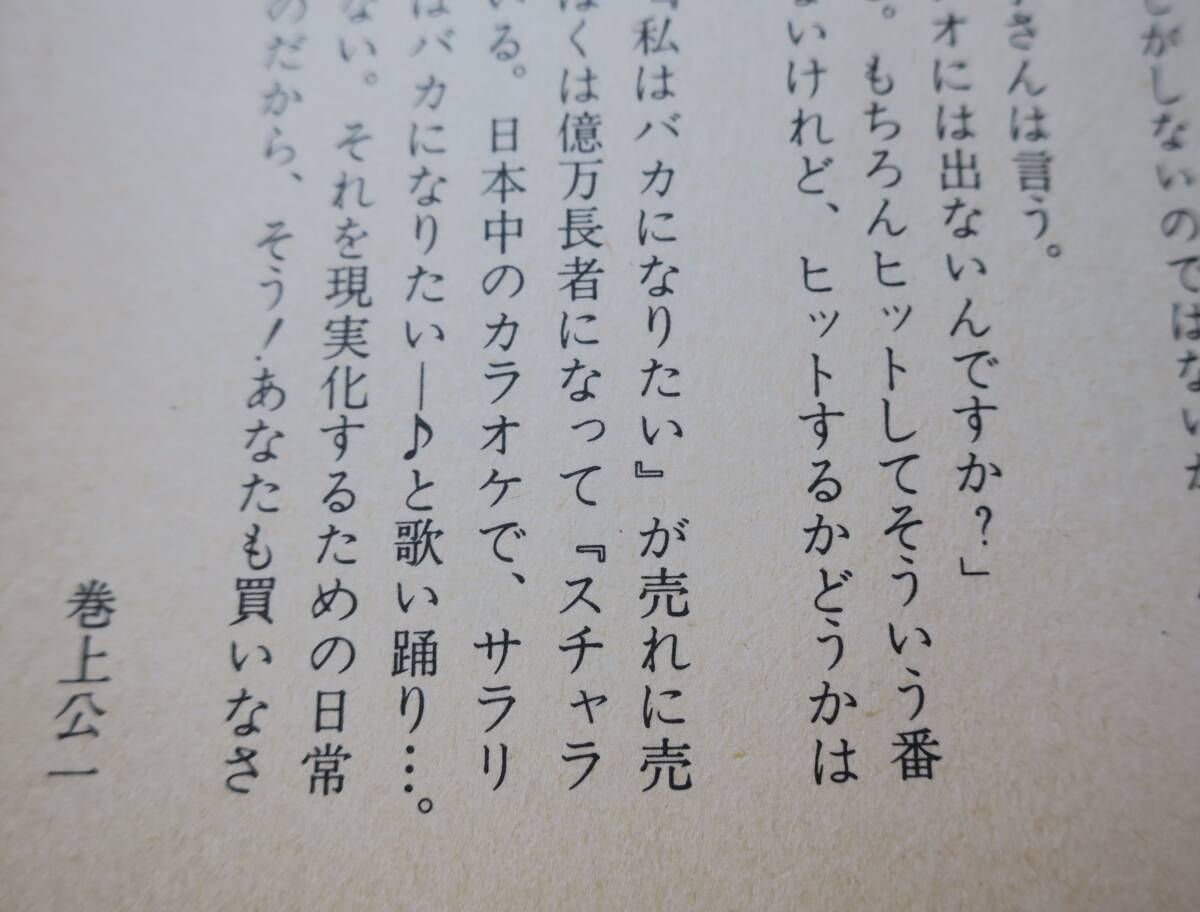 がしないのではないか
さんは言う。
オには出ないんですか?」
。もちろんヒットしてそういう番
ないけれど、ヒットするかどうかは
『私はバカになりたい』が売れに売
ぼくは億万長者になって『スチャラ
いる。日本中のカラオケで、サラリ
はバカになりたい—♪と歌い踊り…。
ない。それを現実化するための日常
のだから、そう!あなたも買いなさ
巻上公一